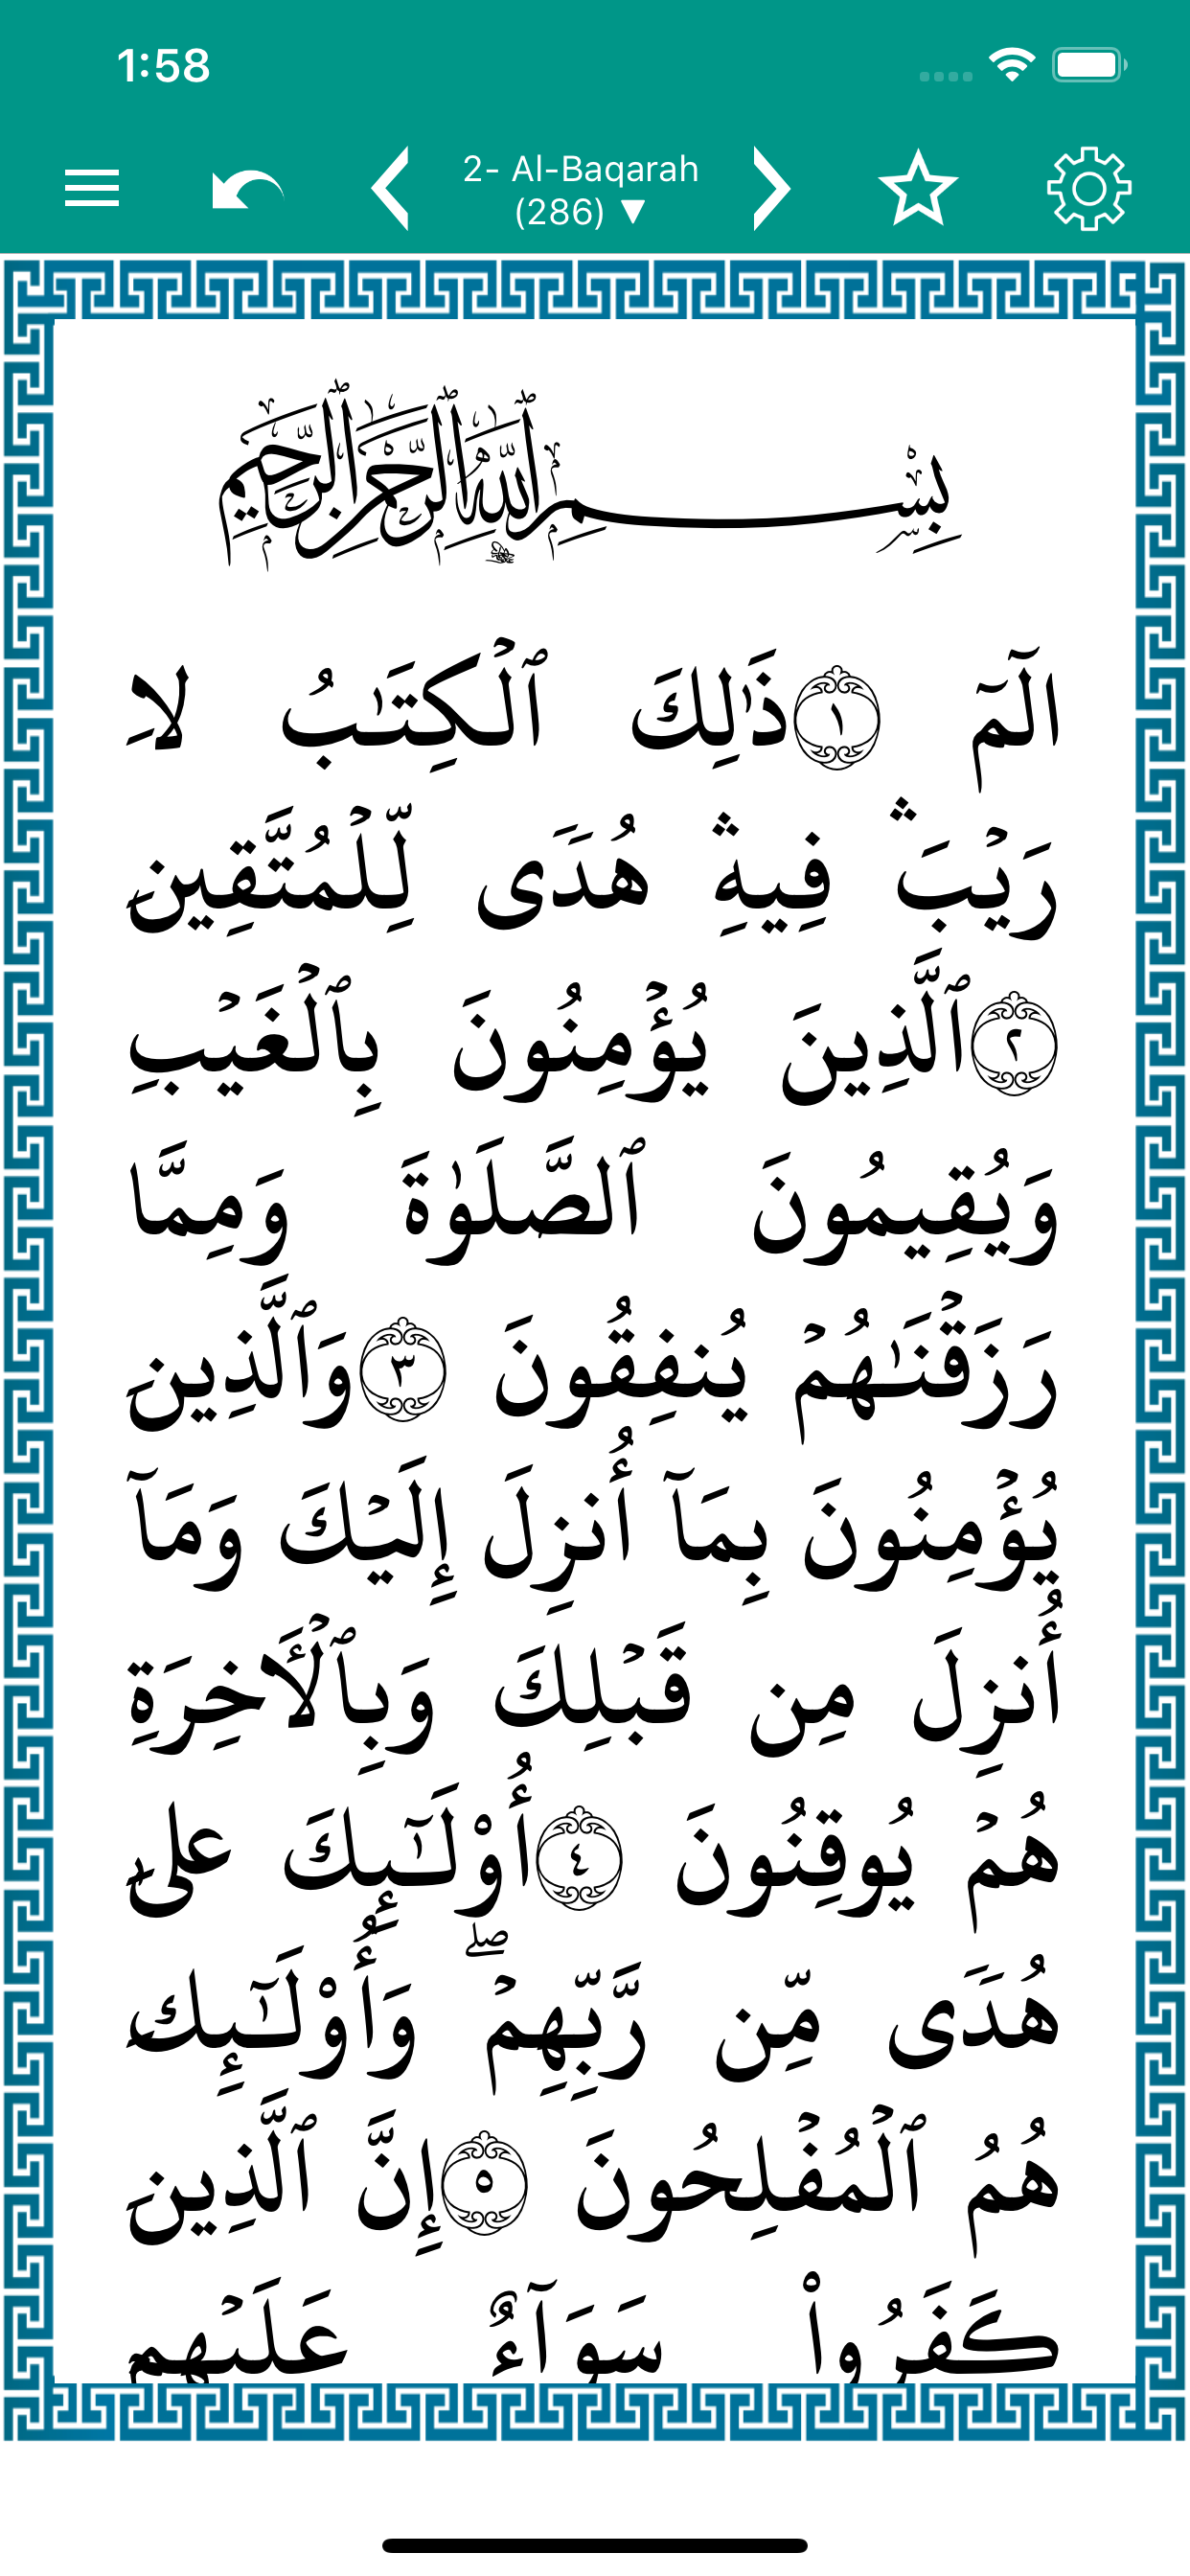 1:58
2- Al-Baqarah
(286) ▼
بِسْمِ ٱللَّهِ ٱلرَّحْمَٰنِ ٱلرَّحِيمِ
الٓمٓ ١ ذَٰلِكَ ٱلۡكِتَٰبُ لاِ
رَيۡبَۛ فِيهِۛ هُدٗى لِّلۡمُتَّقِينِ
٢ ٱلَّذِينَ يُؤۡمِنُونَ بِٱلۡغَيۡبِ
وَيُقِيمُونَ ٱلصَّلَوٰةَ وَمِمَّا
رَزَقۡنَٰهُمۡ يُنفِقُونَ ٣ وَٱلَّذِينِ
يُؤۡمِنُونَ بِمَآ أُنزِلَ إِلَيۡكَ وَمَآ
أُنزِلَ مِن قَبۡلِكَ وَبِٱلۡأَخِرَةِ
هُمۡ يُوقِنُونَ ٤ أُوْلَٰٓئِكَ علىٰ
هُدٗى مِّن رَّبِّهِمۡۖ وَأُوْلَٰٓئِكِ
هُمُ ٱلۡمُفۡلِحُونَ ٥ إِنَّ ٱلَّذِينِ
كَفَرُواْ سَوَآءٌ عَلَيۡهِم